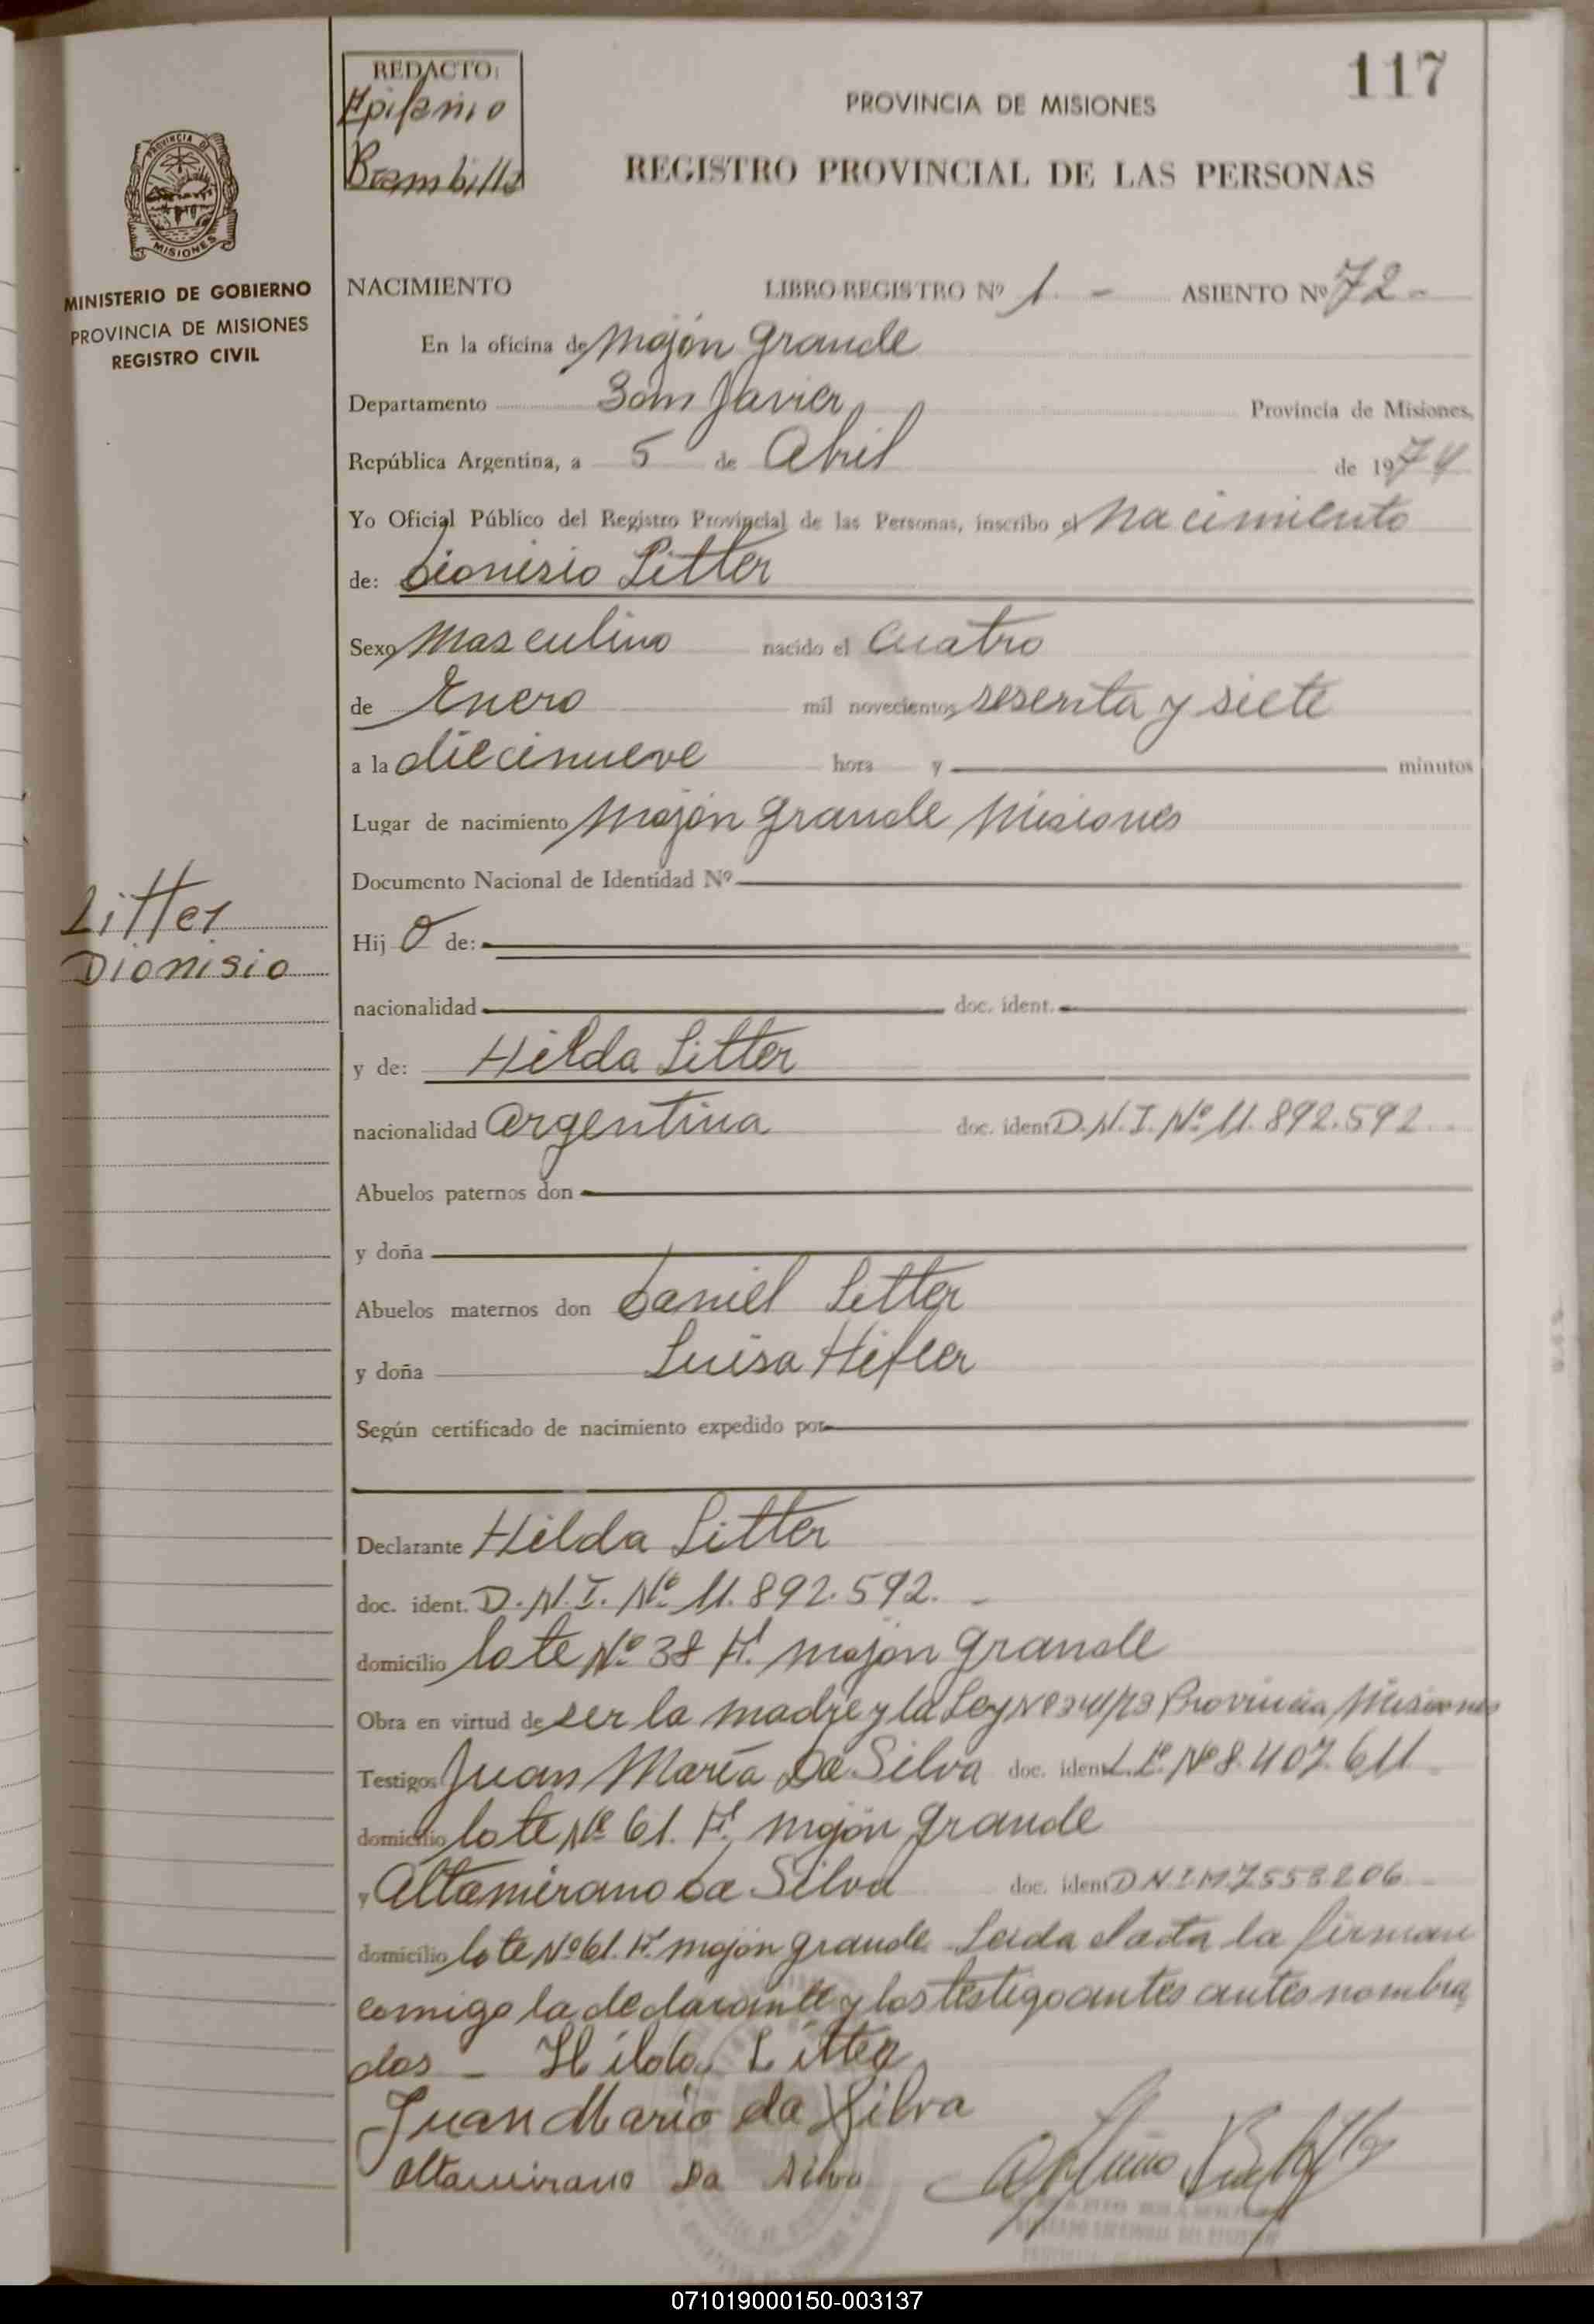 117
REDACTO:
Epifanio
Brambilla
PROVINCIA DE MISIONES
REGISTRO PROVINCIAL DE LAS PERSONAS
PROVINCIA DE
MISIONES
MINISTERIO DE GOBIERNO
PROVINCIA DE MISIONES
REGISTRO CIVIL
NACIMIENTO LIBRO REGISTRO Nº 1 - ASIENTO Nº 72 -
En la oficina de Mojón Grande
Departamento San Javier Provincia de Misiones,
República Argentina, a 5 de Abril de 1974
Yo Oficial Público del Registro Provincial de las Personas, inscribo el Nacimiento
de: Dionisio Litter
Sexo Masculino nacido el Cuatro
de Enero mil novecientos sesenta y siete
a la diecinueve hora y minutos
Lugar de nacimiento Mojón Grande Misiones
Documento Nacional de Identidad Nº
Litter
Dionisio
Hij o de:
nacionalidad doc. ident.
y de: Hilda Litter
nacionalidad Argentina doc. ident D.N.I. Nº 11.892.592
Abuelos paternos don
y doña
Abuelos maternos don Daniel Litter
y doña Luisa Hifler
Según certificado de nacimiento expedido por
Declarante Hilda Litter
doc. ident. D.N.I. Nº 11.892.592. -
domicilio lote Nº 38 Mojón Grande
Obra en virtud de ser la madre y la Ley Provincia Misiones
Testigos Juan María Da Silva doc. ident L.E. Nº 8.407.611
domicilio lote Nº 61. Mojón Grande
y Altamirano Da Silva doc. ident D N I M 7558206
domicilio lote Nº 61. Mojón Grande Leida el acta la firman
comigo la declarante y los testigo antes antes nombra
dos - Hilda Litter
Juan Mario da Silva
Altamirano Da Silva
071019000150-003137